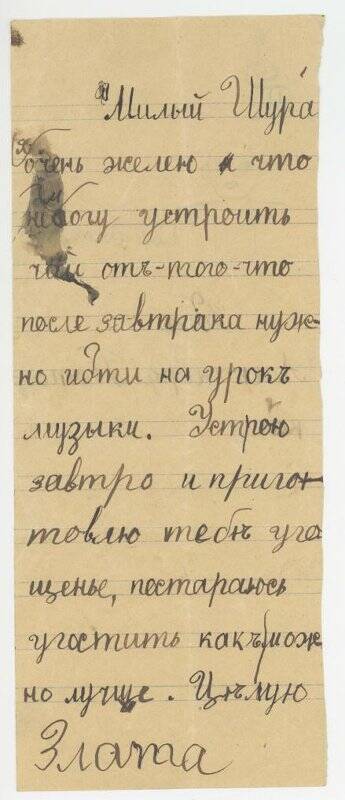 Милый Шура
Я очень желею что
не могу устроить
чай отъ-того-что
после завтрака нуж-
но идти на урокъ
музыки. Устрою
завтро и приго-
товлю тебѣ уго
щенье, постараюсь
угостить какъ мож
но лучше. Цѣлую
Злата